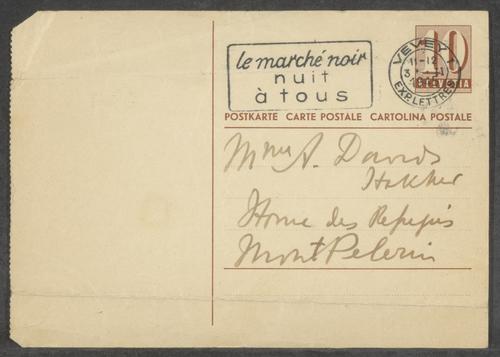 le marché noir
nuit
à tous
VEVEY 1
11-12
EXP. LETTRES
10
HELVETIA
POSTKARTE CARTE POSTALE CARTOLINA POSTALE
Mme A. Davids
Home des Refugiés
Mont Pelerin